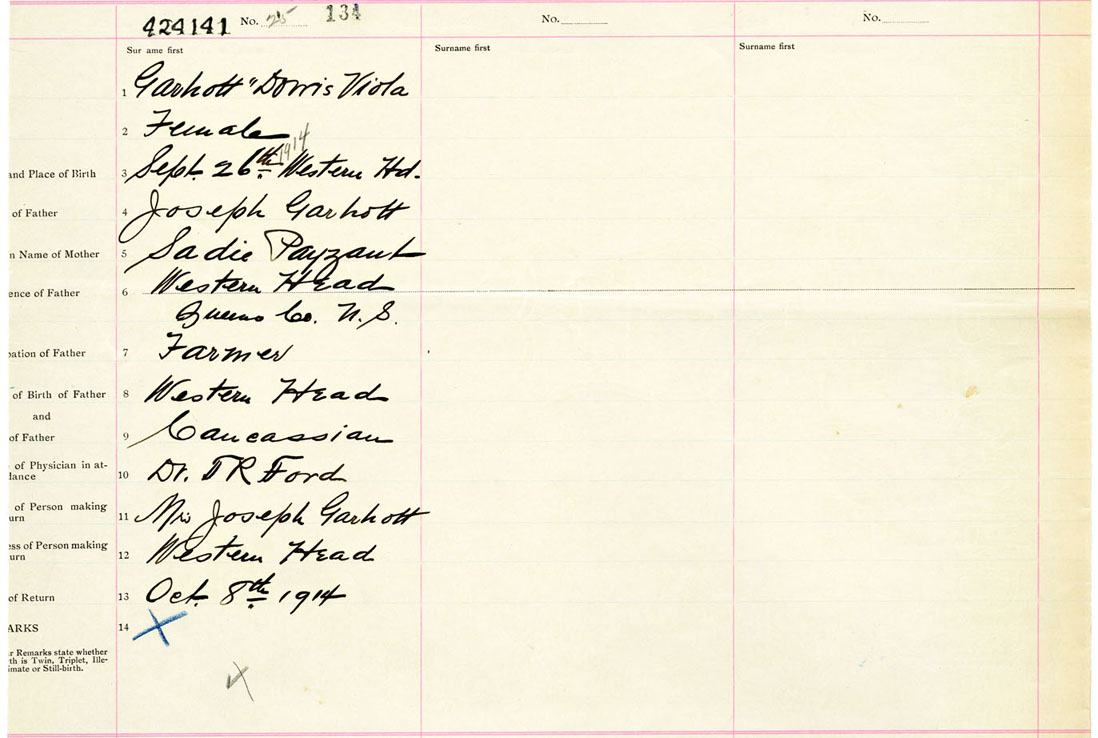 424141 No. 25 134
No.
No.
Sur ame first
Surname first
Surname first
1 Garhott "Dorris Viola
2 Female
1914
and Place of Birth 3 Sept. 26th. Western Hd.
of Father 4 Joseph Garhott
n Name of Mother 5 Sadie Payzant
ence of Father 6 Western Head
Queens Co. N.S.
pation of Father 7 Farmer
of Birth of Father 8 Western Head
and
of Father 9 Caucassian
of Physician in at-
dance 10 Dr. T R Ford
of Person making
urn 11 Mrs Joseph Garhott
ess of Person making
urn 12 Western Head
of Return 13 Oct. 8th. 1914
ARKS 14
r Remarks state whether
th is Twin, Triplet, Ille-
imate or Still-birth.